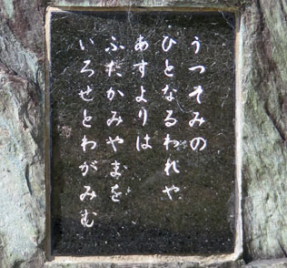 うつそみの
ひとなるわれや
あすよりは
ふたかみやまを
いろせとわがみむ